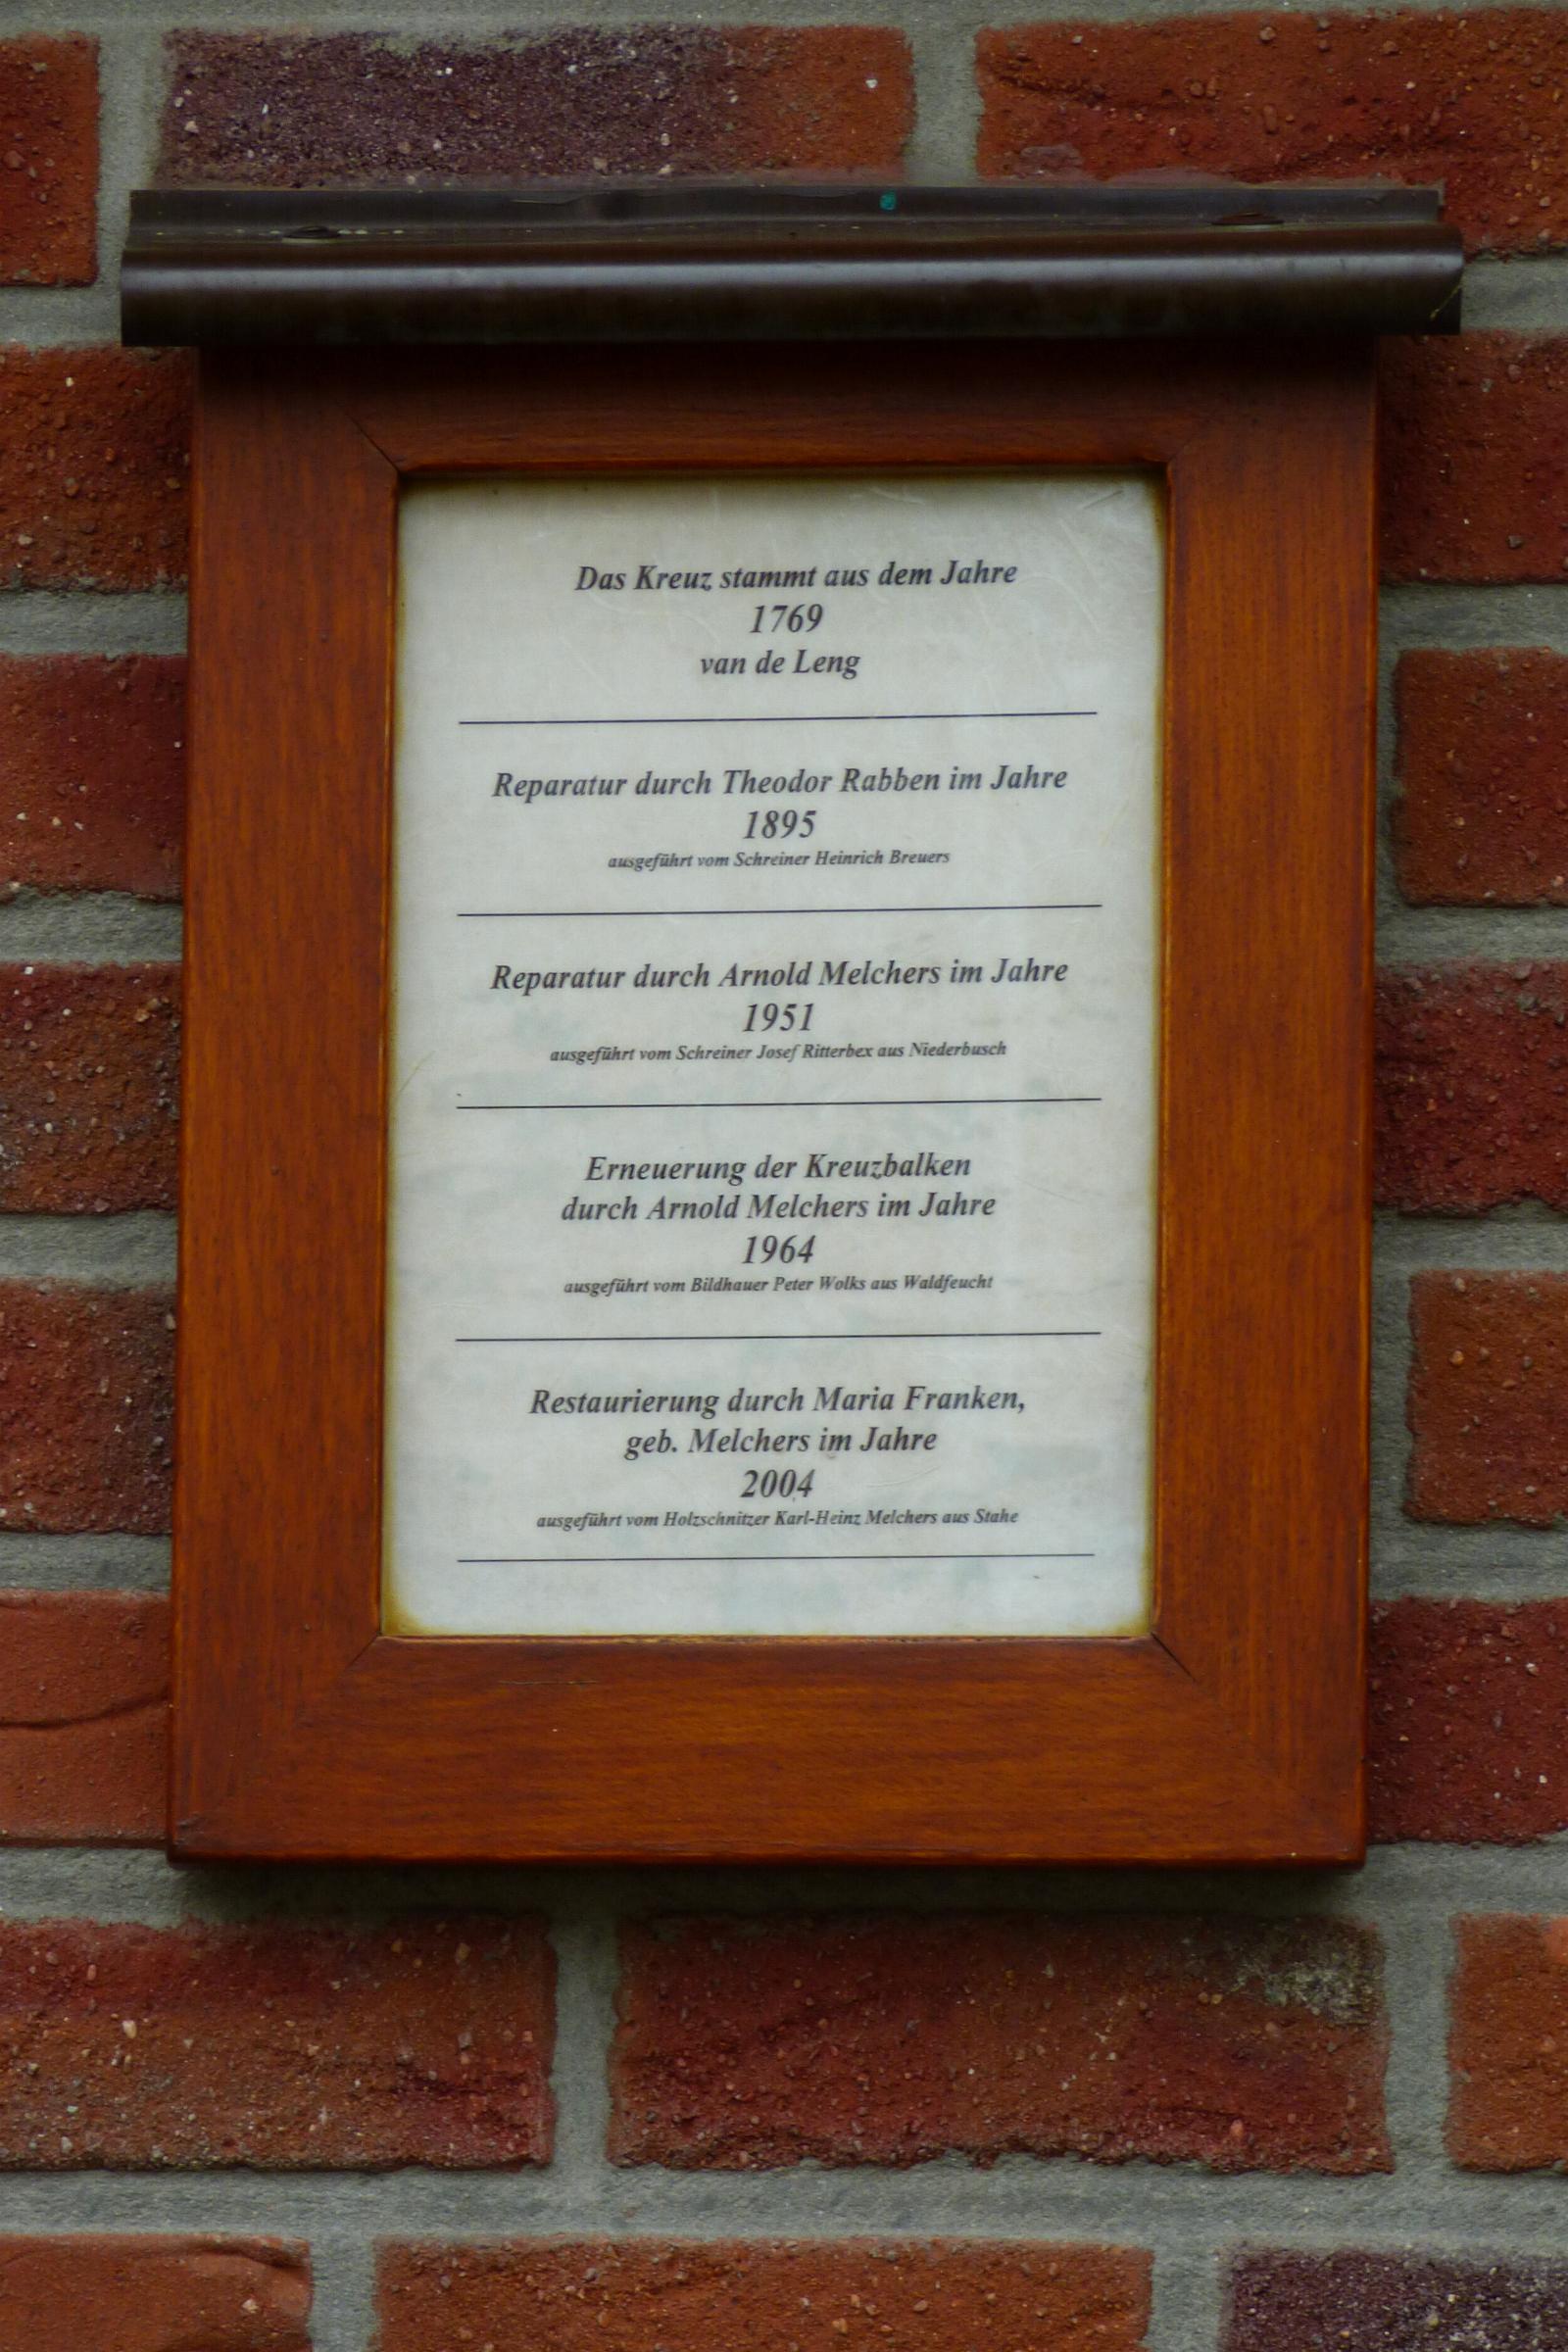 Das Kreuz stammt aus dem Jahre
1769
van de Leng
Reparatur durch Theodor Rabben im Jahre
1895
ausgeführt vom Schreiner Heinrich Breuers
Reparatur durch Arnold Melchers im Jahre
1951
ausgeführt vom Schreiner Josef Ritterbex aus Niederbusch
Erneuerung der Kreuzbalken
durch Arnold Melchers im Jahre
1964
ausgeführt vom Bildhauer Peter Wolks aus Waldfeucht
Restaurierung durch Maria Franken,
geb. Melchers im Jahre
2004
ausgeführt vom Holzschnitzer Karl-Heinz Melchers aus Stahe